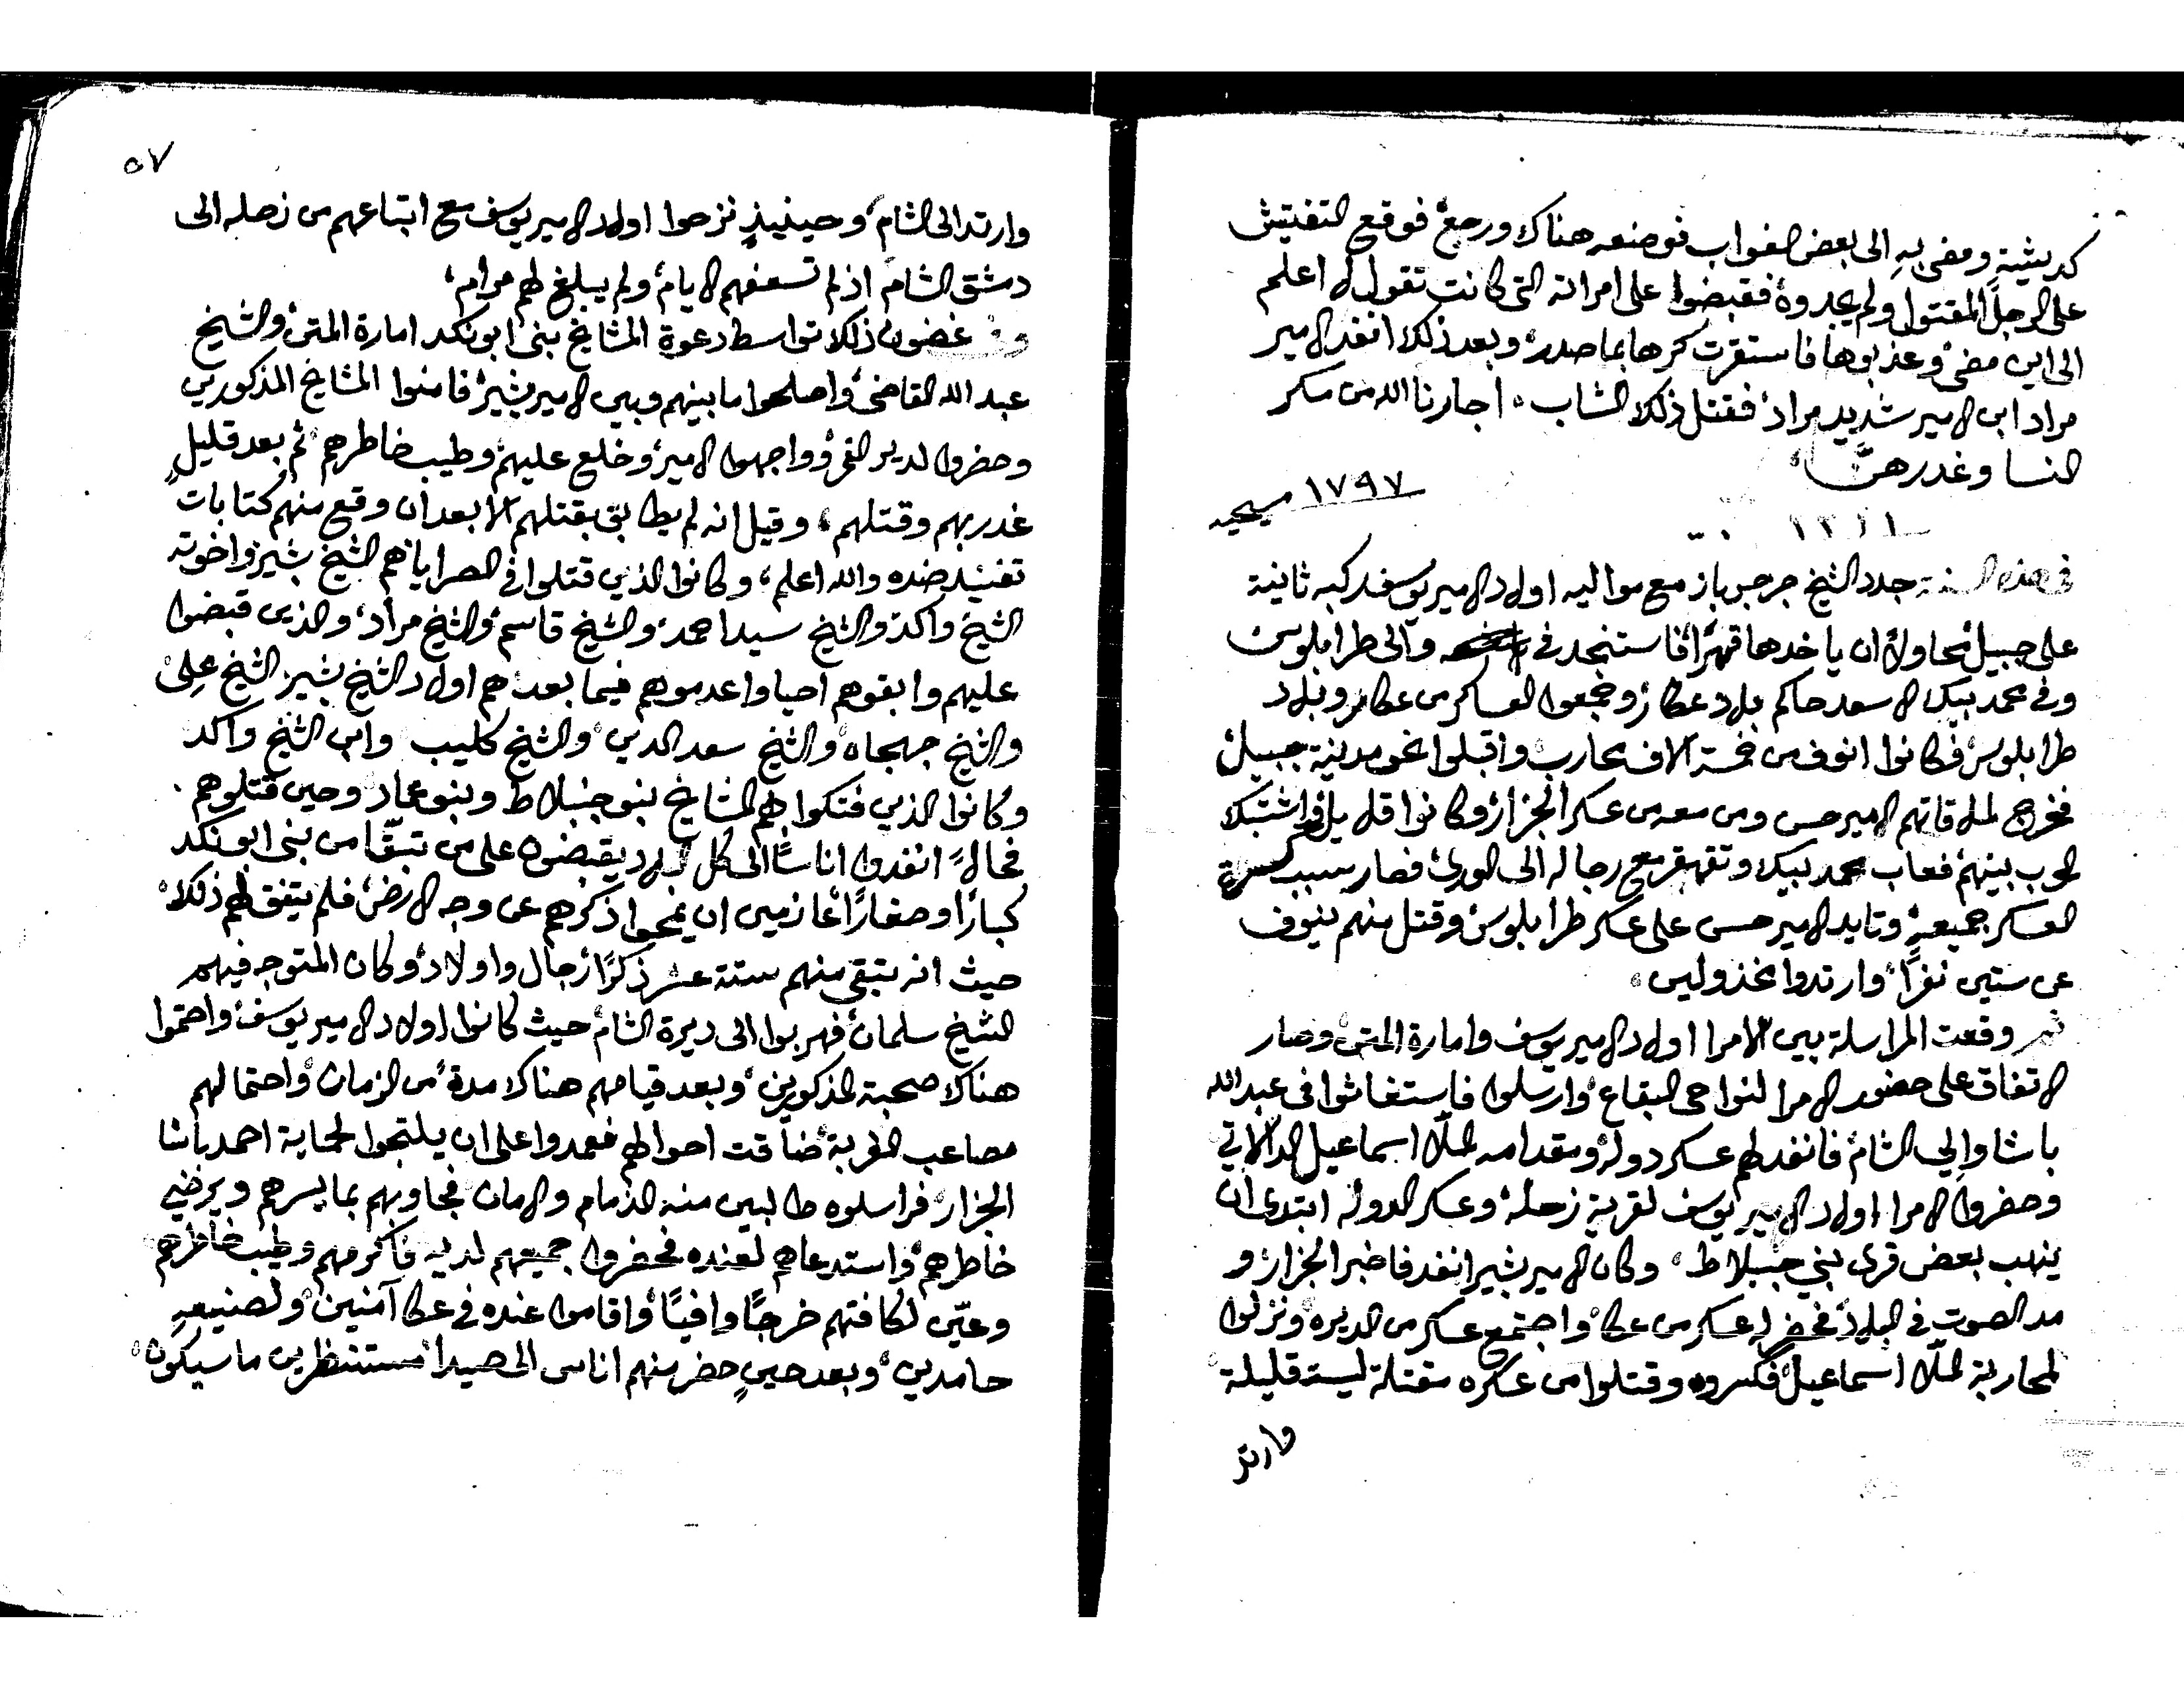 كديشيةٍ ومضى بهِ الى بعض الغواب فوضعه هناك ورجع فوقع التفتيش
على الرجل المقتول ولم يجدوهُ فقبضوا على امراته التى كانت تقول له اعلم
الى اين مضى وعذبوها فاستقرت كرها بما صدر وبعد ذلك انفد الامير
مراد ابن الامير شديد مراد فقتل ذلك الشاب اجارنا الله من مكر
النسا وغدرهنَّ
١٧٩٧ مسيحيه
١٢١١
فى هذه السنة جدد الشيخ جرجس باز مع مواليه اولاد الامير يوسف ركبه ثانية
على جبيل محاولاً ان ياخدها قهرًا فاستنجد في والى طرابلوس
وفى محمد بيك الاسعد حاكم بلاد عكار وجمعوا العساكر من عكار وبلاد
طرابلوس فكانوا انوف من خمسة الاف محارب واقبلوا نحو مدينة جبيل
فخرج لملاقاتهم الامير حسن ومن معه من عسكر الجزار وكانوا قلايل فاشتبك
الحرب بينهم فعاب محمد بيك وتقهقر مع رجاله الى الورى فصار سبب كسرة
العسكر جميعهِ وتايد الامير حسن على عسكر طرابلوس وقتل منهم ينوف
عن ستين نفرًا وارتدوا مخذولين
ثم وقعت المراسلة بين الامرا اولاد الامير يوسف وامارة المتن وصار
الاتفاق على حضور الامرا لنواحى البقاع وارسلوا فاستغاثوا فى عبد الله
باشا والي الشام فانفد لهم عسكر دوله ومقدامه الملّا اسماعيل الدالاتي
وحضروا الامرا اولاد الامير يوسف لقرية زحله وعسكر الدوله ابتدى ان
ينهب بعض قرى بني جنبلاط وكان الامير بشير انفد فاخبر الجزار و
مد الصوت في البلاد فحضر له عسكر من عكا واجتمع عسكر من الديره ونزلوا
لمحاربة الملّا اسماعيل فكسروه وقتلوا من عسكره مقتلة ليست قليلة
وارتد
٥٧
وارتد الى الشام وحينيذٍ نزحوا اولاد الامير يوسف مع اتباعهم من زحله الى
دمشق الشام اذ لم تسعفهم الايام ولم يبلغ لهم مرام
وفى غضون ذلك تواسط دعوة المشايخ بنى ابو نكد امارة المتن والشيخ
عبد الله القاضى واصلحوا ما بينهم وبين الامير بشير فامنوا المشايخ المذكورين
وحضروا لدير القمر وواجهوا الامير وخلع عليهم وطيب خاطرهم ثم بعد قليلٍ
غدر بهم وقتلهم وقيل انه لم يطابق بقتلهم الا بعد ان وقع منهم كتابات
تفنيد ضده والله اعلم وكانوا الذين قتلوا فى الصرايا هم الشيخ بشير واخوته
الشيخ واكد والشيخ سيد احمد والشيخ قاسم والشيخ مراد والذين قبضوا
عليهم وابقوهم احيا واعدموهم فيما بعد هم اولاد الشيخ بشير الشيخ علي
والشيخ جهجاه والشيخ سعد الدين والشيخ كليب وابن الشيخ واكد
وكانوا الذين فتكوا بهم المشايخ بنو جنبلاط وبنو عماد وحين قتلوهم
فحالاً انفدوا اناسًا الى كل البلاد يقبضون على من تبقّا من بنى ابو نكد
كبارًا وصغارًا عازمين ان يمحوا ذكرهم عن وجه الارض فلم يتفق لهم ذلك
حيث انه تبقى منهم ستة عشر ذكرًا رجال واولاد وكان المتوجه فيهم
الشيخ سلمان فهربوا الى ديرة الشام حيث كانوا اولاد الامير يوسف واحتموا
هناك صحبة المذكورين وبعد قيامهم هناك مدة من الزمان واحتمالهم
مصاعب الغربة ضاقت احوالهم فعمدوا على ان يلتجوا لحماية احمد باشا
الجزار فراسلوه طالبين منه الذمام والامان فجاوبهم بما يسرهم ويرضي
خاطرهم واستدعاهم لعنده فحضروا جميعهم لديه فاكرمهم وطيب خاطرهم
وعيّن لكافتهم خرجًا وافيًا واقاموا عنده فى عكا آمنين ولصنيعهِ
حامدين وبعد حينٍ حضر منهم اناس الى صيدا مستنظرين ما سيكون